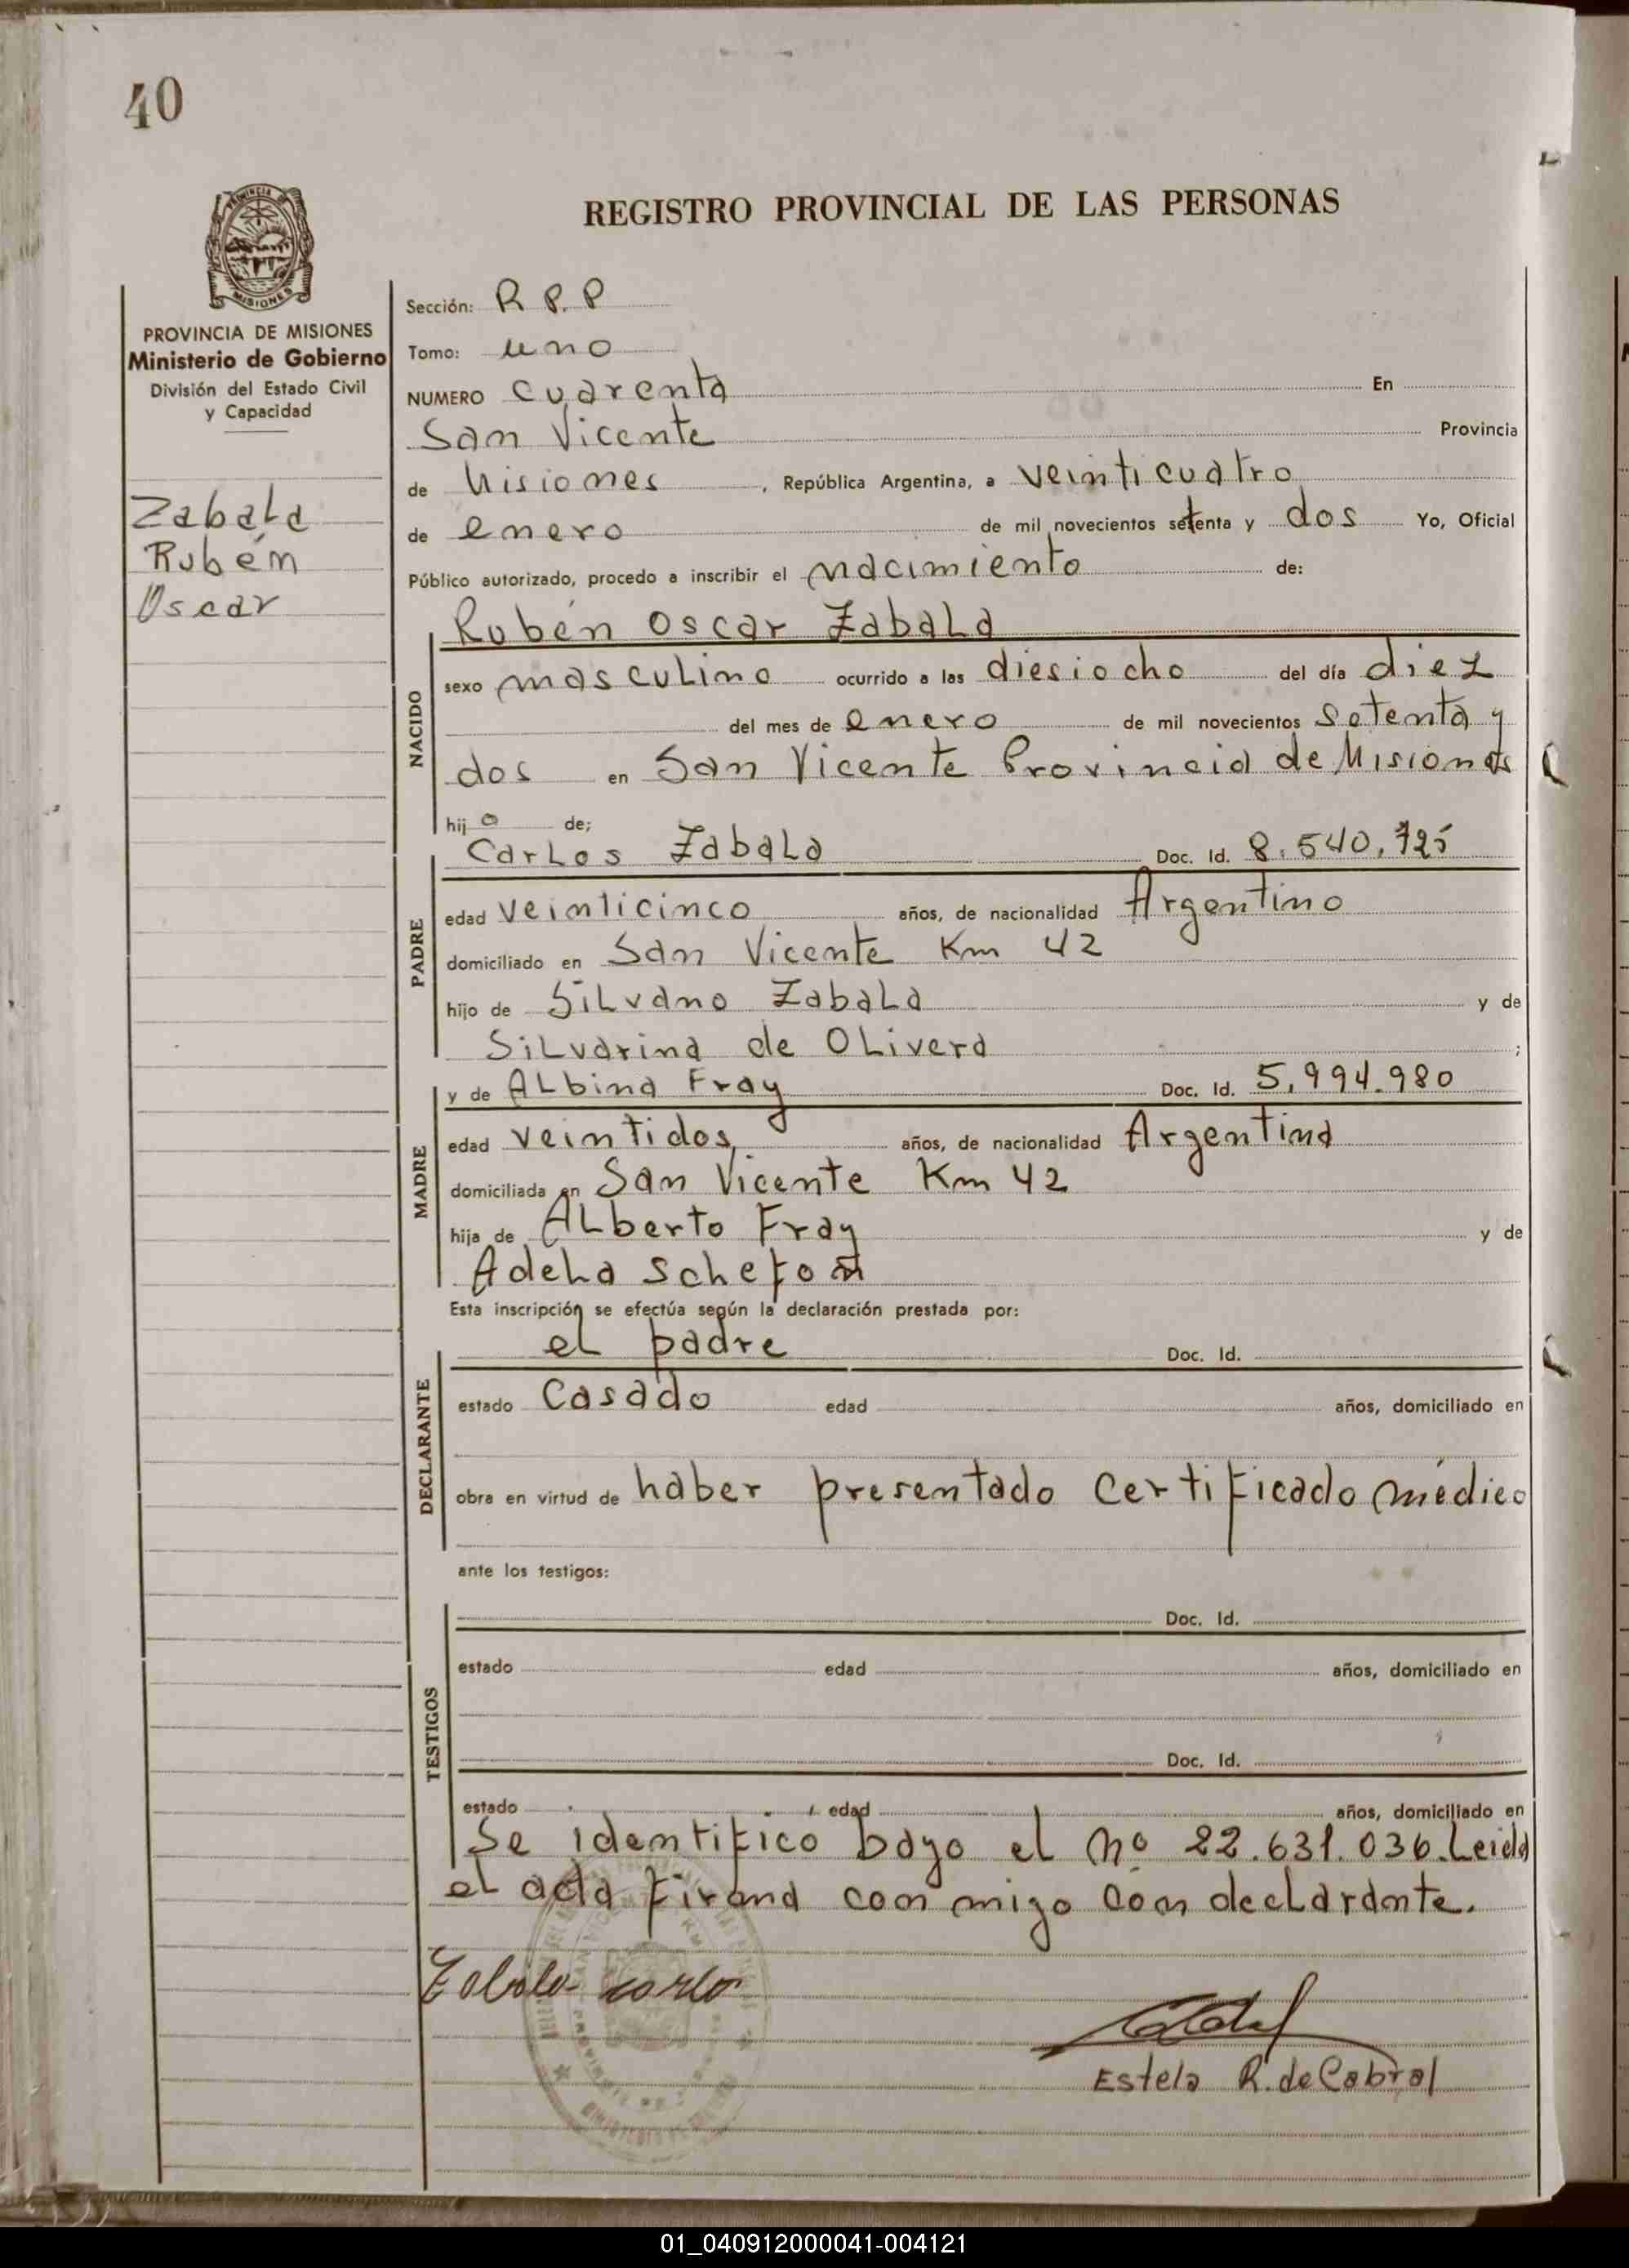 40
PROVINCIA
MISIONES
PROVINCIA DE MISIONES
Ministerio de Gobierno
División del Estado Civil
y Capacidad
Zabala
Rubén
Oscar
REGISTRO PROVINCIAL DE LAS PERSONAS
Sección: R P. P
Tomo: uno
NUMERO cuarenta En
San Vicente Provincia
de Misiones , República Argentina, a veinticuatro
de enero de mil novecientos setenta y dos Yo, Oficial
Público autorizado, procedo a inscribir el nacimiento de:
Rubén Oscar Zabala
NACIDO
sexo masculino ocurrido a las diesiocho del día diez
del mes de enero de mil novecientos setenta y
dos en San Vicente Provincia de Misiones
hijo de;
Carlos Zabala Doc. Id. 8.540.725
PADRE
edad veinticinco años, de nacionalidad Argentino
domiciliado en San Vicente Km 42
hijo de Silvano Zabala y de
Silvarina de Olivera ;
y de Albina Fray Doc. Id. 5.994.980
MADRE
edad veintidos, años, de nacionalidad Argentina
domiciliada en San Vicente Km 42
hija de Alberto Fray y de
Adela
Esta inscripción se efectúa según la declaración prestada por:
el padre Doc. Id.
DECLARANTE
estado Casado edad años, domiciliado en
obra en virtud de haber presentado certificado médico
ante los testigos:
Doc. Id.
TESTIGOS
estado edad años, domiciliado en
Doc. Id.
estado edad años, domiciliado en
Se identifico bayo el nº 22.631.036. Leida
el acta firand con migo con declarante.
Zabala Carlo
Estela R. de Cabral
01_040912000041-004121